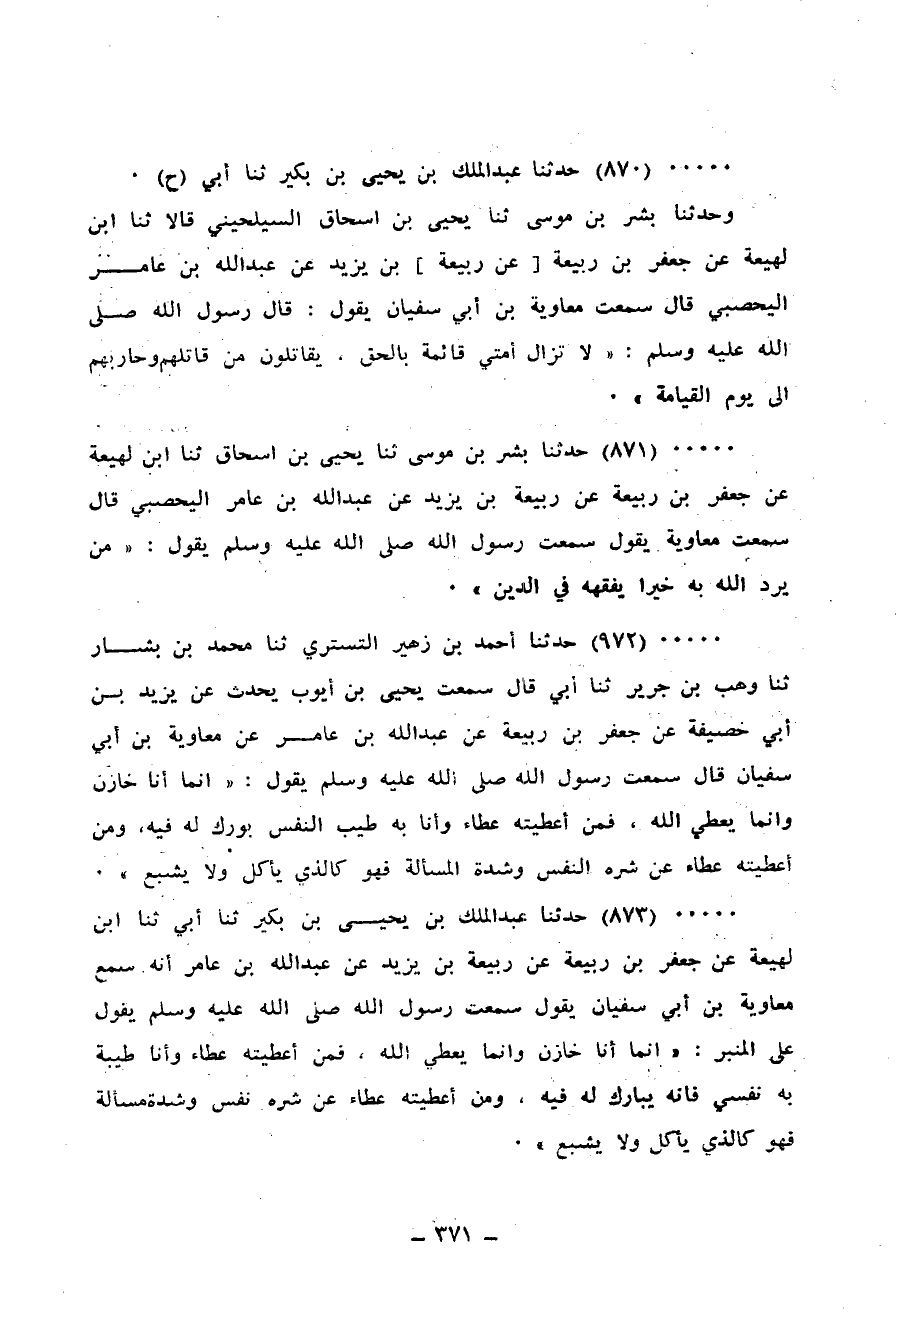 ٠٠٠٠٠ (٨٧٠) حدثنا عبدالملك بن يحيى بن بكير ثنا أبي (ح) ٠
وحدثنا بشر بن موسى ثنا يحيى بن اسحاق السيلحيني قالا ثنا ابن
لهيعة عن جعفر بن ربيعة [ عن ربيعة ] بن يزيد عن عبدالله بن عامــر
اليحصبي قال سمعت معاوية بن أبي سفيان يقول : قال رسول الله صــلى
الله عليه وسلم : « لا تزال أمتي قائمة بالحق ، يقاتلون من قاتلهموحاربهم
الى يوم القيامة » ٠
٠٠٠٠٠ (٨٧١) حدثنا بشر بن موسى ثنا يحيى بن اسحاق ثنا ابن لهيعة
عن جعفر بن ربيعة عن ربيعة بن يزيد عن عبدالله بن عامر اليحصبي قال
سمعت معاوية يقول سمعت رسول الله صلى الله عليه وسلم يقول : « من
يرد الله به خيرا يفقهه في الدين » ٠
٠٠٠٠٠ (٩٧٢) حدثنا أحمد بن زهير التستري ثنا محمد بن بشــار
ثنا وهب بن جرير ثنا أبي قال سمعت يحيى بن أيوب يحدث عن يزيد بــن
أبي خصيفة عن جعفر بن ربيعة عن عبدالله بن عامــر عن معاوية بن أبي
سفيان قال سمعت رسول الله صلى الله عليه وسلم يقول : « انما أنا خازن
وانما يعطي الله ، فمن أعطيته عطاء وأنا به طيب النفس بورك له فيه، ومن
أعطيته عطاء عن شره النفس وشدة المسألة فهو كالذي يأكل ولا يشبع » ٠
٠٠٠٠٠ (٨٧٣) حدثنا عبدالملك بن يحيــى بن بكير ثنا أبي ثنا ابن
لهيعة عن جعفر بن ربيعة عن ربيعة بن يزيد عن عبدالله بن عامر أنه سمع
معاوية بن أبي سفيان يقول سمعت رسول الله صلى الله عليه وسلم يقول
على المنبر : « انما أنا خازن وانما يعطي الله ، فمن أعطيته عطاء وأنا طيبة
به نفسي فانه يبارك له فيه ، ومن أعطيته عطاء عن شره نفس وشدةمسألة
فهو كالذي يأكل ولا يشبع » ٠
– ٣٧١ –